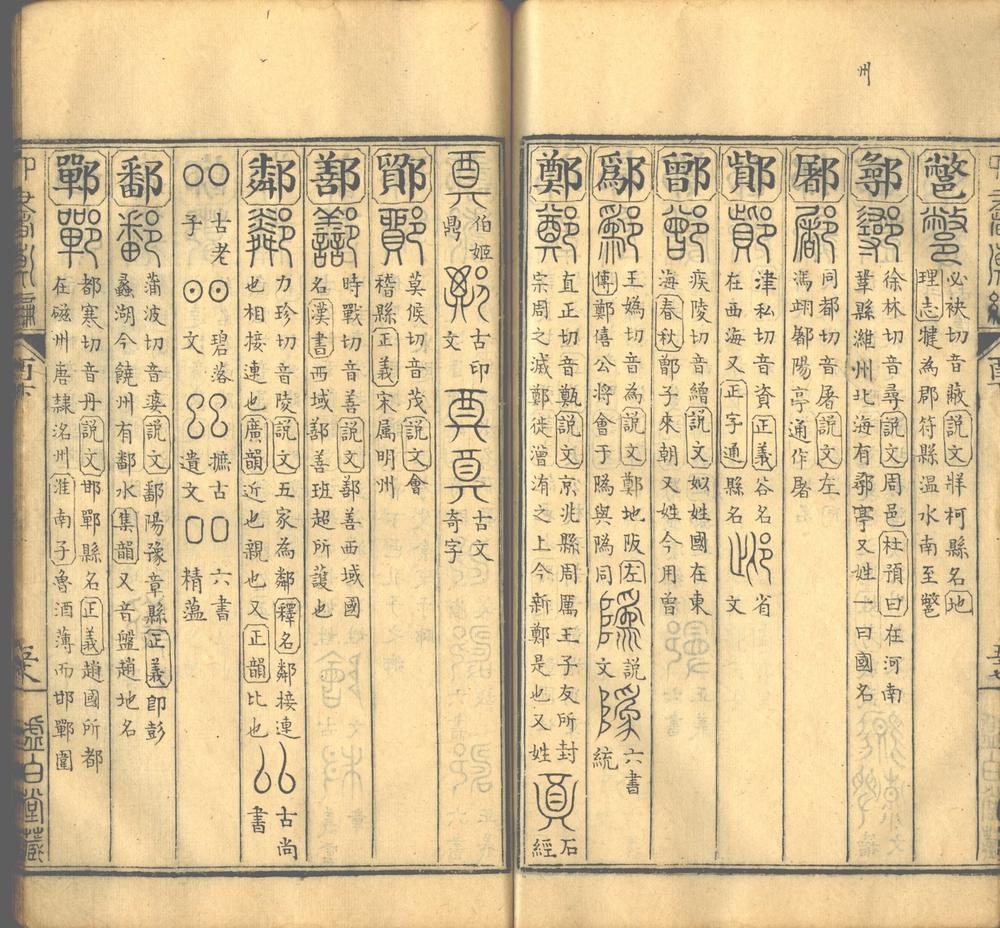 州
必袂切音蔽說文牂柯縣名地
理志犍為郡符縣温水南至鷩
徐林切音尋說文周邑杜預曰在河南
鞏縣濰州北海有鄩亭又姓一曰國名
鄩
同都切音屠說文左
馮翊鄜陽亭通作屠
鄜
津私切音資正義谷名
在西海又正字通縣名
省
文
鄑
疾陵切音繒說文姒姓國在東
海春秋鄫子來朝又姓今用曾
鄫
王媯切音為說文鄭地阪左
傳鄭僖公將會于䧦與䧦同
說文
六書統
鄬
直正切音甄說文京兆縣周厲王子友所封
宗周之滅鄭徙潧洧之上今新鄭是也又姓
石經
鄭
伯姬鼎
古印文
古文奇字
莫候切音茂說文會
稽縣正義宋属明州
鄮
時戰切音善說文鄯善西域國
名漢書西域鄯善班超所護也
鄯
力珍切音陵說文五家為鄰釋名鄰接連
也相接連也廣韻近也親也又正韻比也
古尚書
鄰
古老子
碧落文
摭古遺文
六書精薀
蒲波切音婆說文鄱陽豫章縣正義即彭
蠡湖今饒州有鄱水集韻又音盤趙地名
鄱
都寒切音丹說文邯鄲縣名正義趙國所都
在磁州唐隷洺州淮南子魯酒薄而邯鄲圍
鄲
虛白堂藏